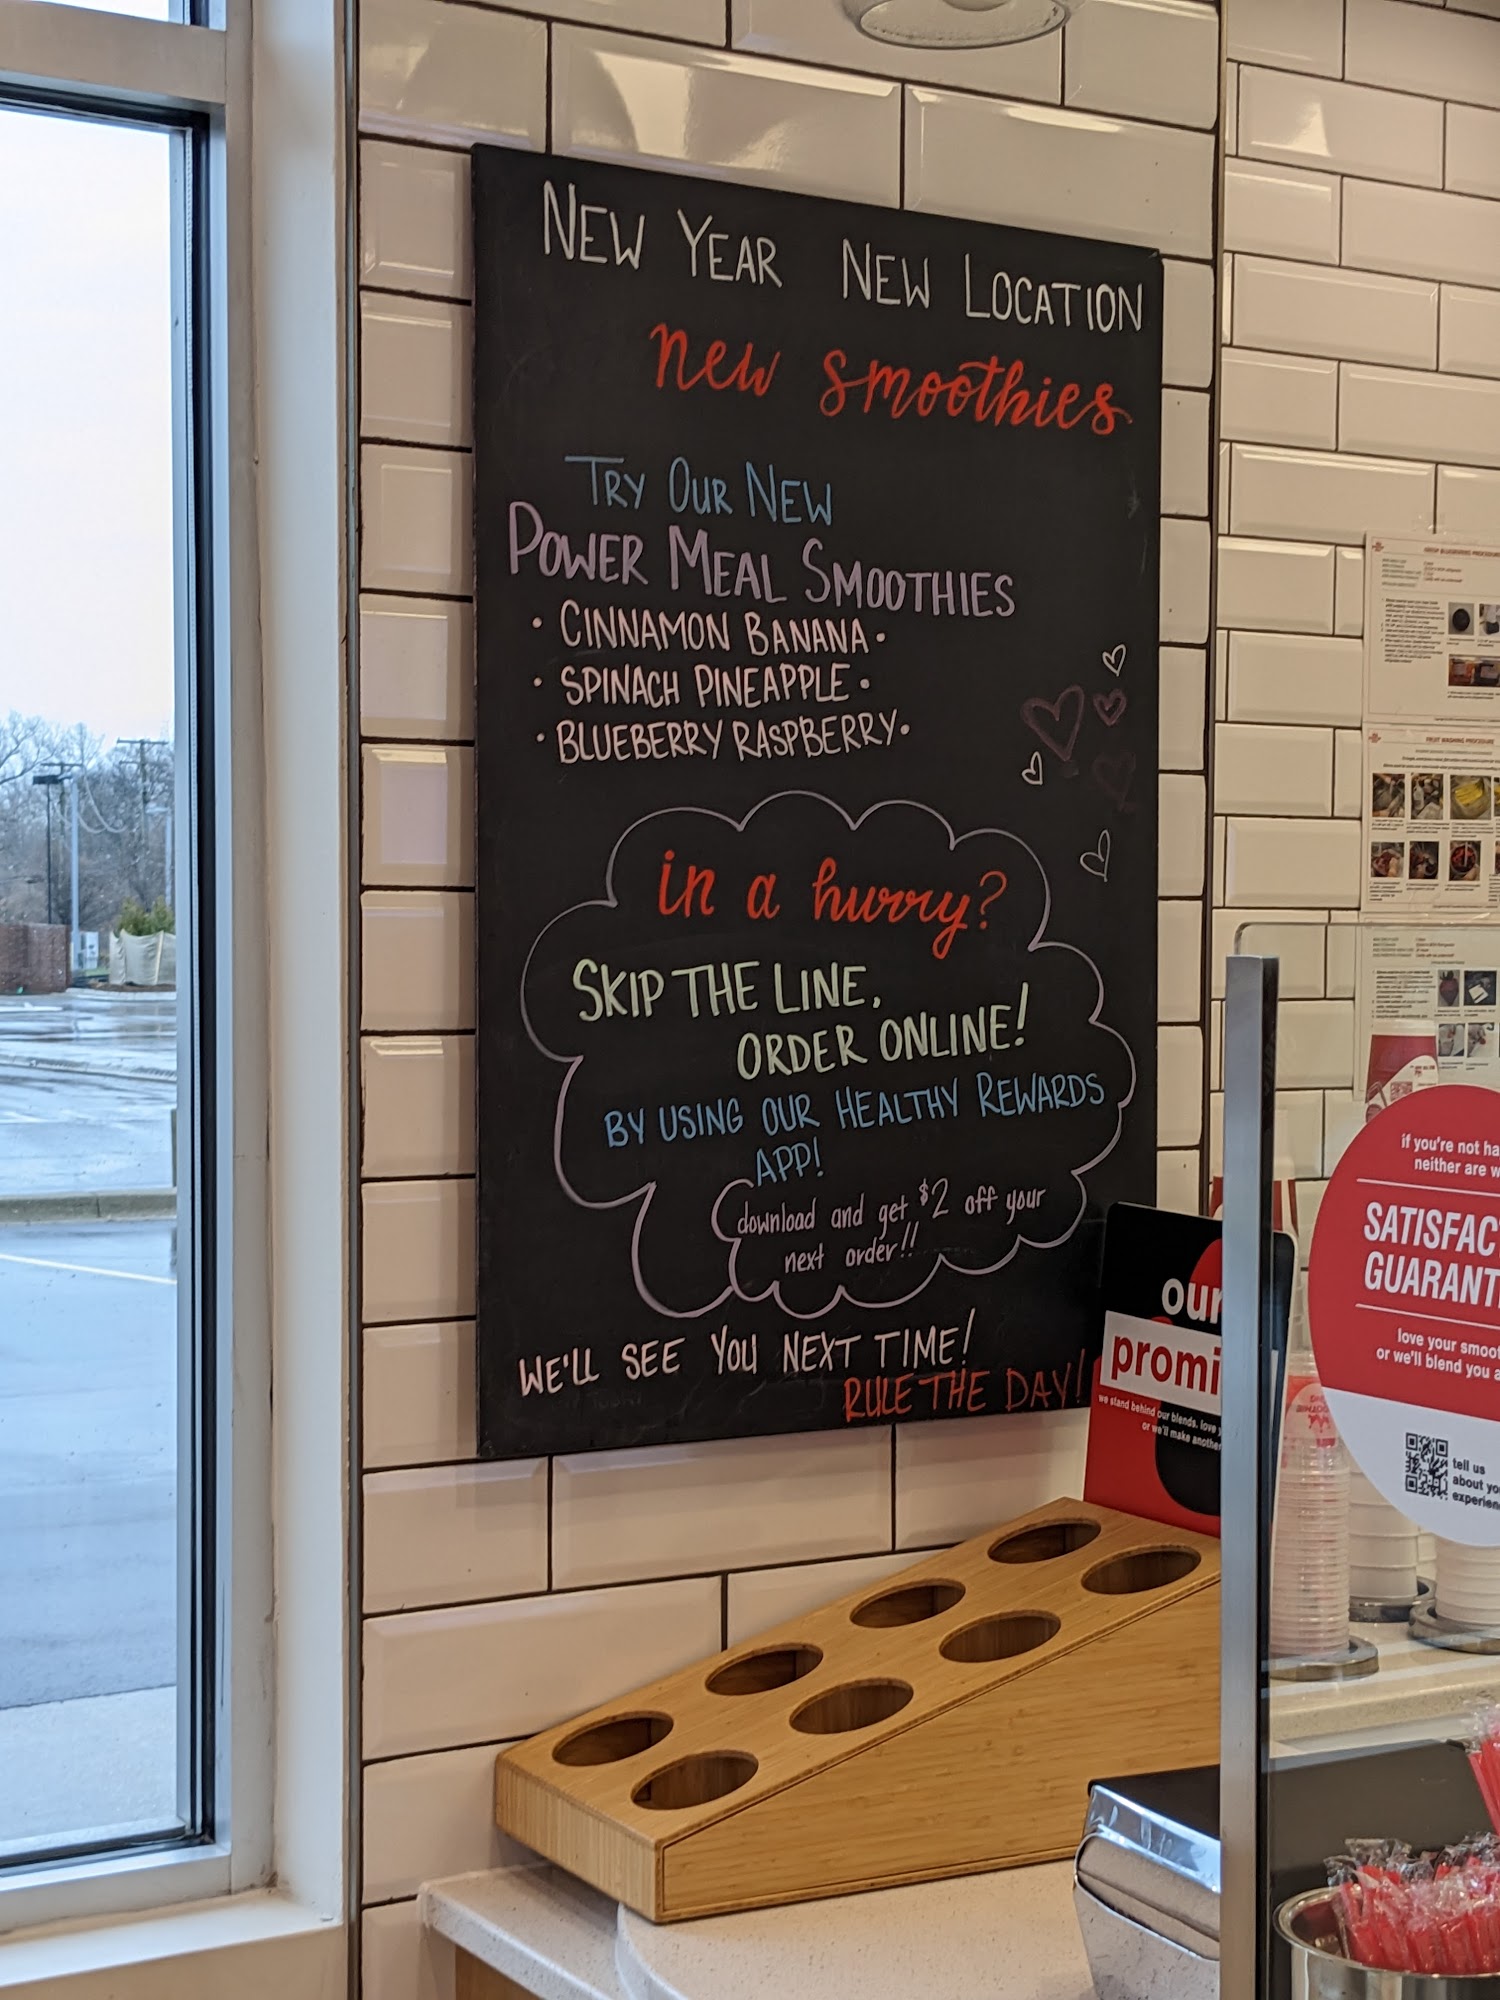 NEW YEAR NEW LOCATION
new smoothies
TRY OUR NEW
POWER MEAL SMOOTHIES
• CINNAMON BANANA •
• SPINACH PINEAPPLE •
• BLUEBERRY RASPBERRY •
in a hurry?
SKIP THE LINE,
ORDER ONLINE!
BY USING OUR HEALTHY REWARDS
APP!
download and get $2 off your
next order!!
WE'LL SEE YOU NEXT TIME!
RULE THE DAY!
our
promi
we stand behind our blends. love
or we'll make another
FRUIT WASHING PROCEDURE
if you're not ha
neither are w
SATISFAC
GUARANT
love your smoot
or we'll blend you a
tell us
about yo
experien